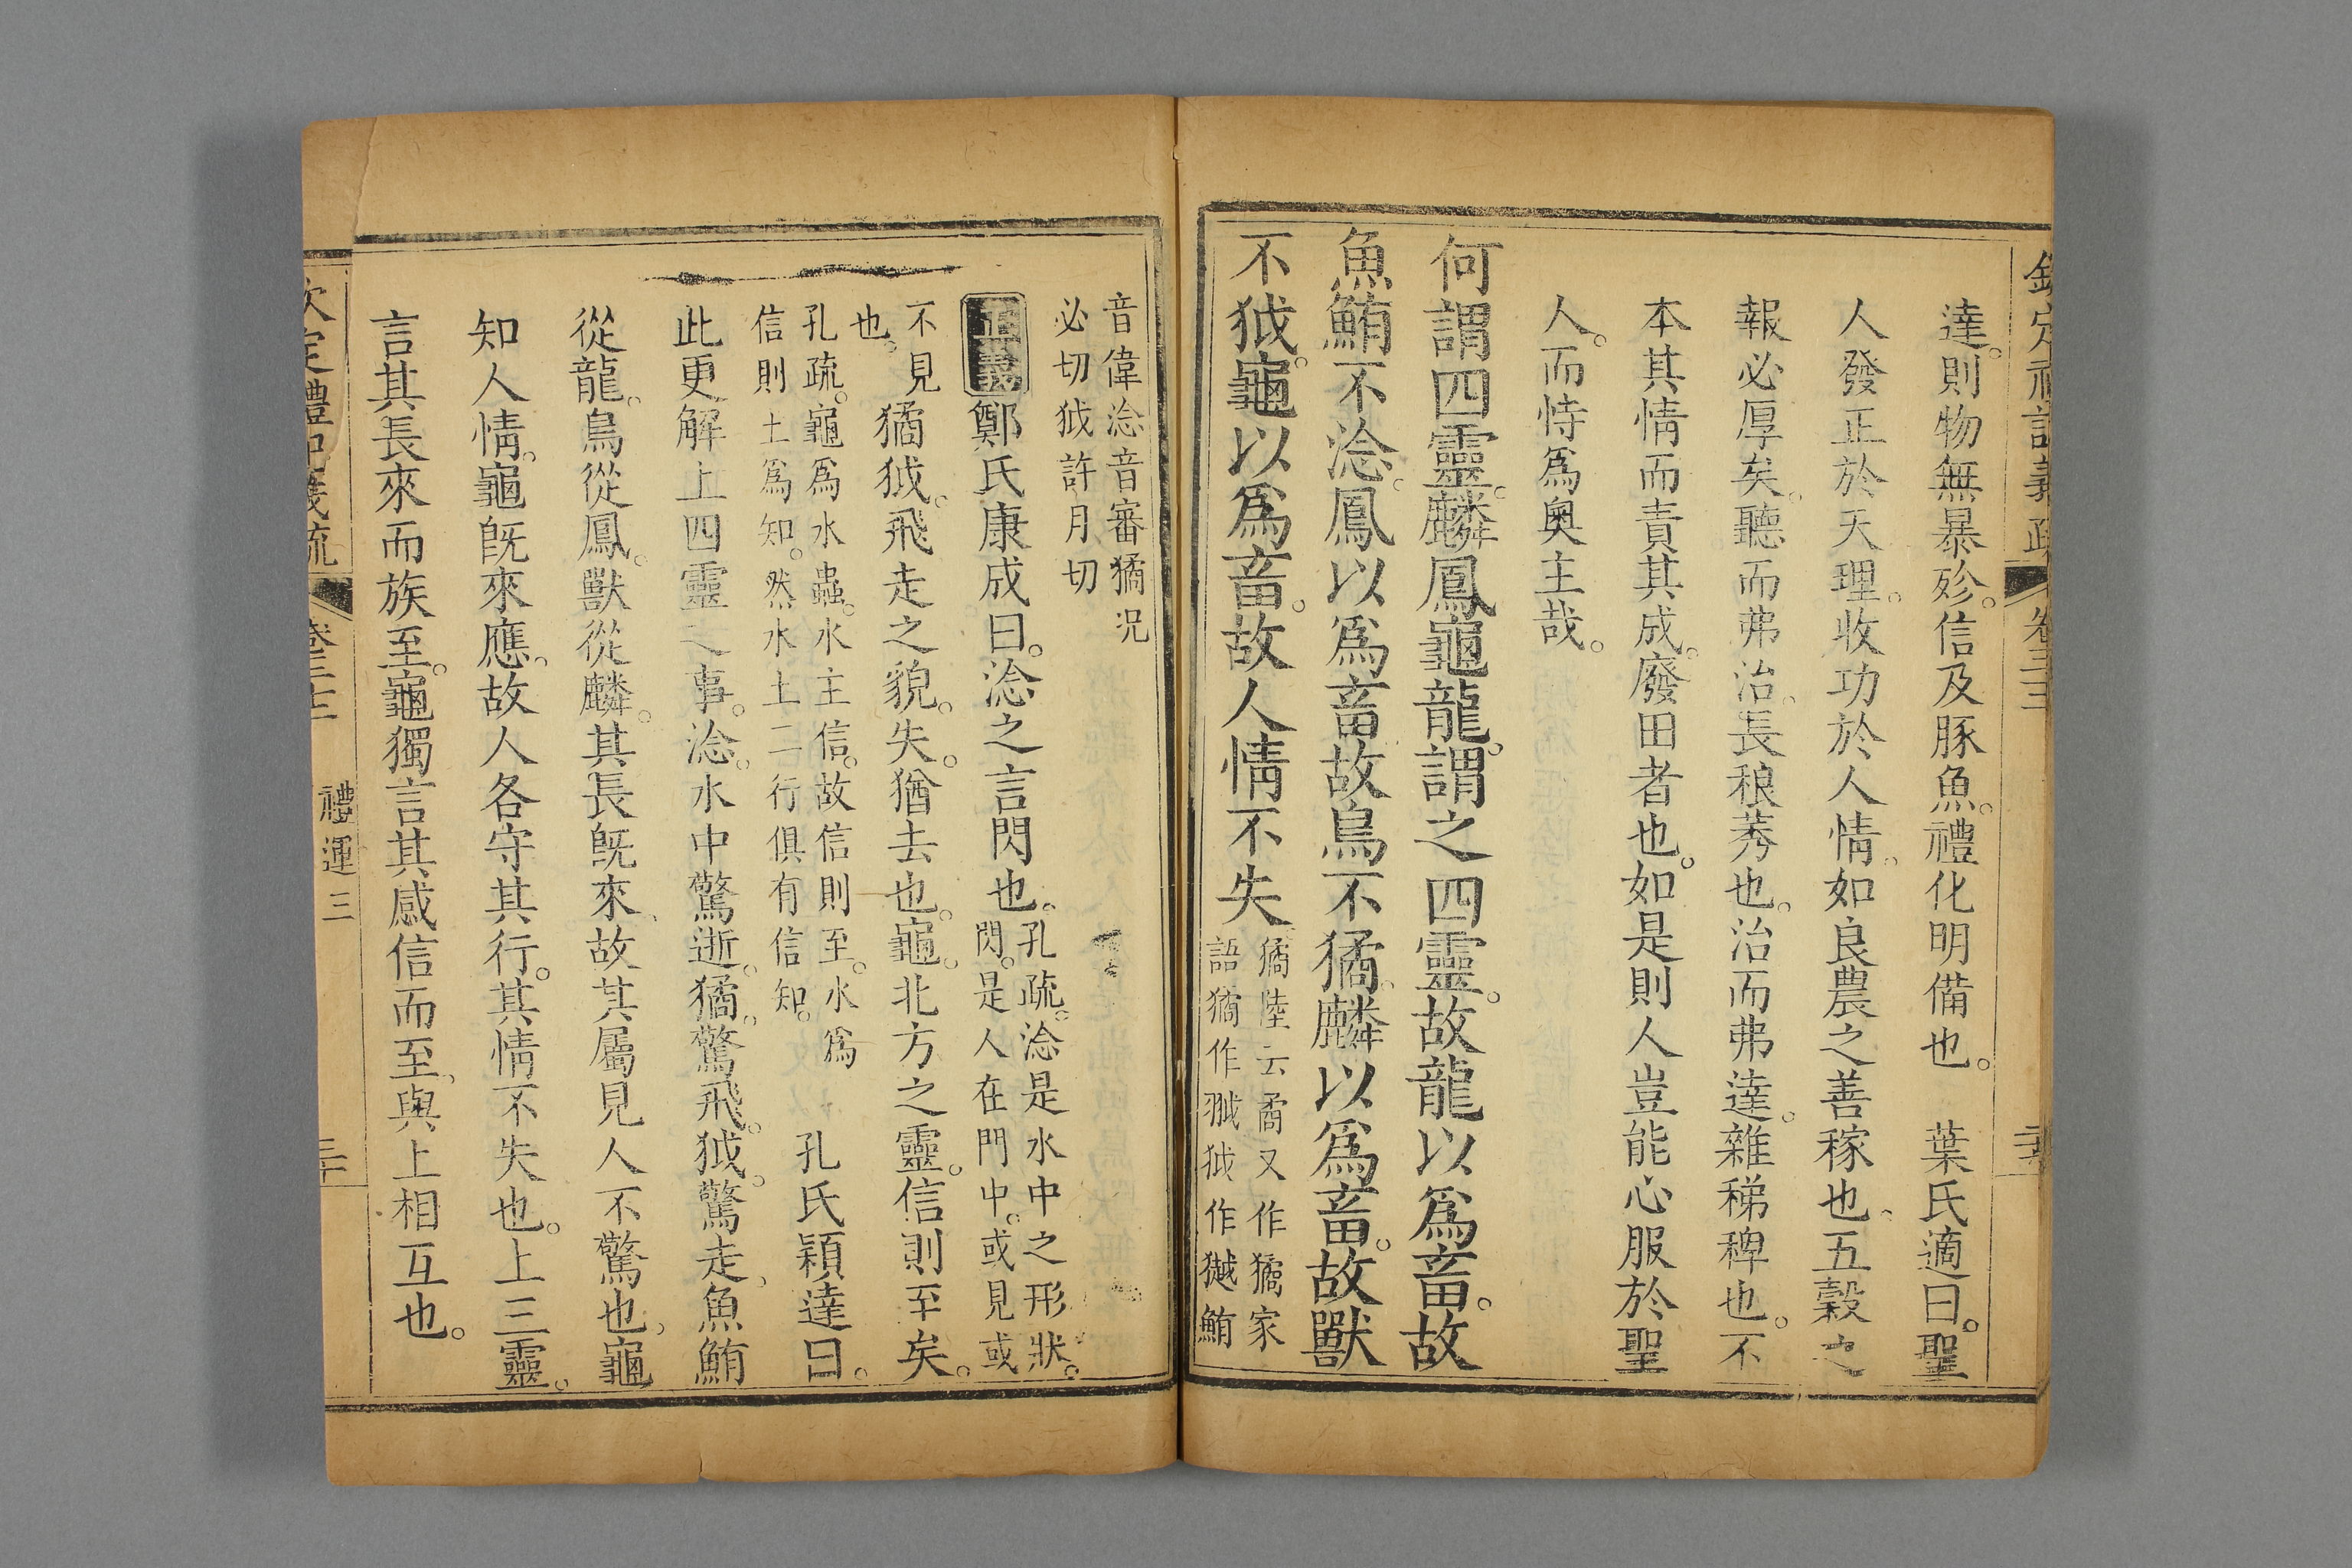 欽定禮記義疏 卷三十三
達。則物無暴殄。信及豚魚。禮化明備也。 葉氏適曰。聖
人發正於天理。收功於人情。如良農之善稼也。五穀之
報必厚矣。聽而弗治。長稂莠也。治而弗達。雜稊稗也。不
本其情而責其成。廢田者也。如是則人豈能心服於聖
人。而恃爲奥主哉。
何謂四靈。麟鳳龜龍。謂之四靈。故龍以爲畜。故
魚鮪不淰。鳳以爲畜。故鳥不獝。麟以爲畜。故獸
不狘。龜以爲畜。故人情不失。
獝陸云矞又作獝家
語獝作翍狘作㺷鮪
音偉淰音審獝况
必切狘許月切
正義鄭氏康成曰。淰之言閃也。
孔疏。淰是水中之形狀。
閃。是人在門中。或見或
不見
也。
獝狘。飛走之貌。失。猶去也。龜。北方之靈。信則至矣。
孔疏。龜爲水蟲。水主信。故信則至。水爲
信則土爲知。然水土二行俱有信知。
孔氏穎達曰。
此更解上四靈之事。淰。水中驚逝。獝。驚飛。狘。驚走。魚鮪
從龍。鳥從鳳。獸從麟。其長旣來、故其屬見人不驚也。龜
知人情。龜旣來應。故人各守其行。其情不失也。上三靈。
言其長來而族至。龜獨言其感信而至。與上相互也。
欽定禮記義疏 卷三十三 禮運三 三十